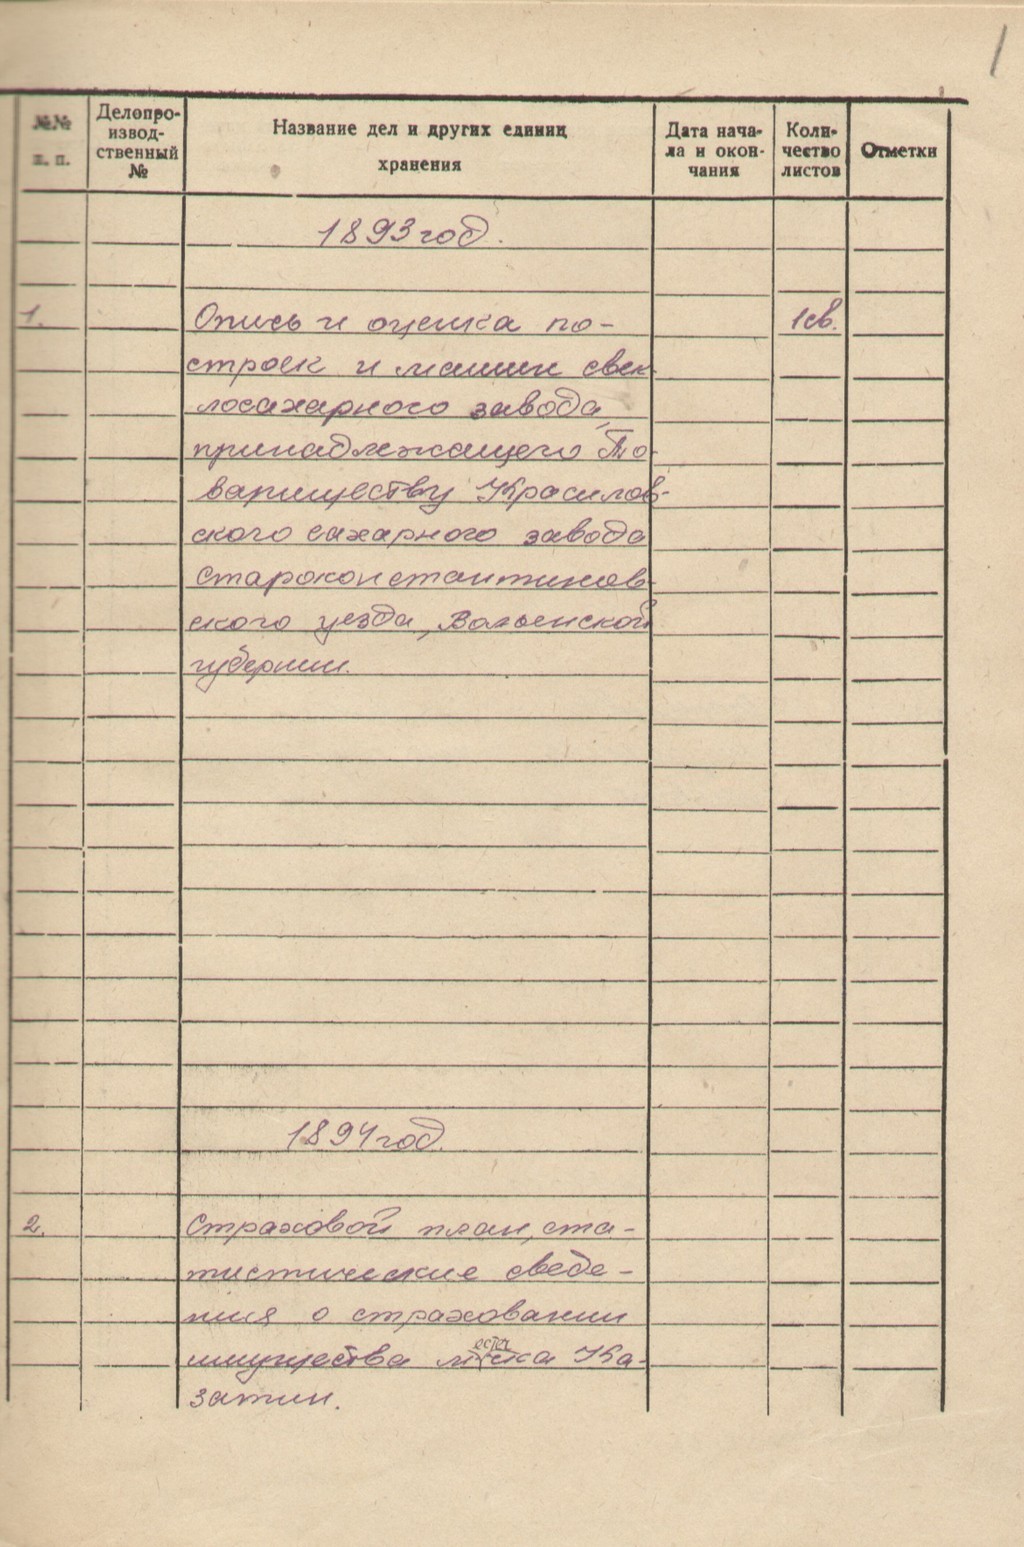 1
№№ п. п.
Делопро-
извод-
ственный
№
Название дел и других единиц
хранения
Дата нача-
ла и окон-
чания
Коли-
чество
листов
Отметки
1893 год.
1. Опись и оценка по- 1 св.
строек и машин свек-
лосахарного завода,
принадлежащего То-
вариществу Красилов-
ского сахарного завода
Староконстантинов-
ского уезда, Волынской
губернии.
1894 год.
2. Страховой план, ста-
тистические сведе-
ния о страховании
имущества местечка Ка-
затин.